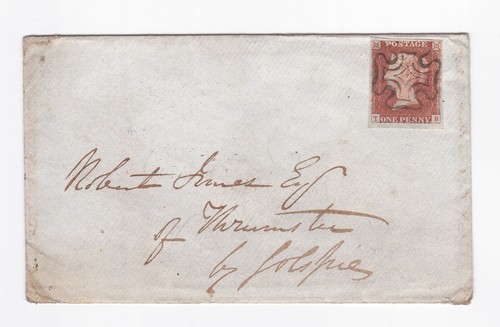 POSTAGE
ONE PENNY
Robert Innes Esq
of Thrumster
by Golspie